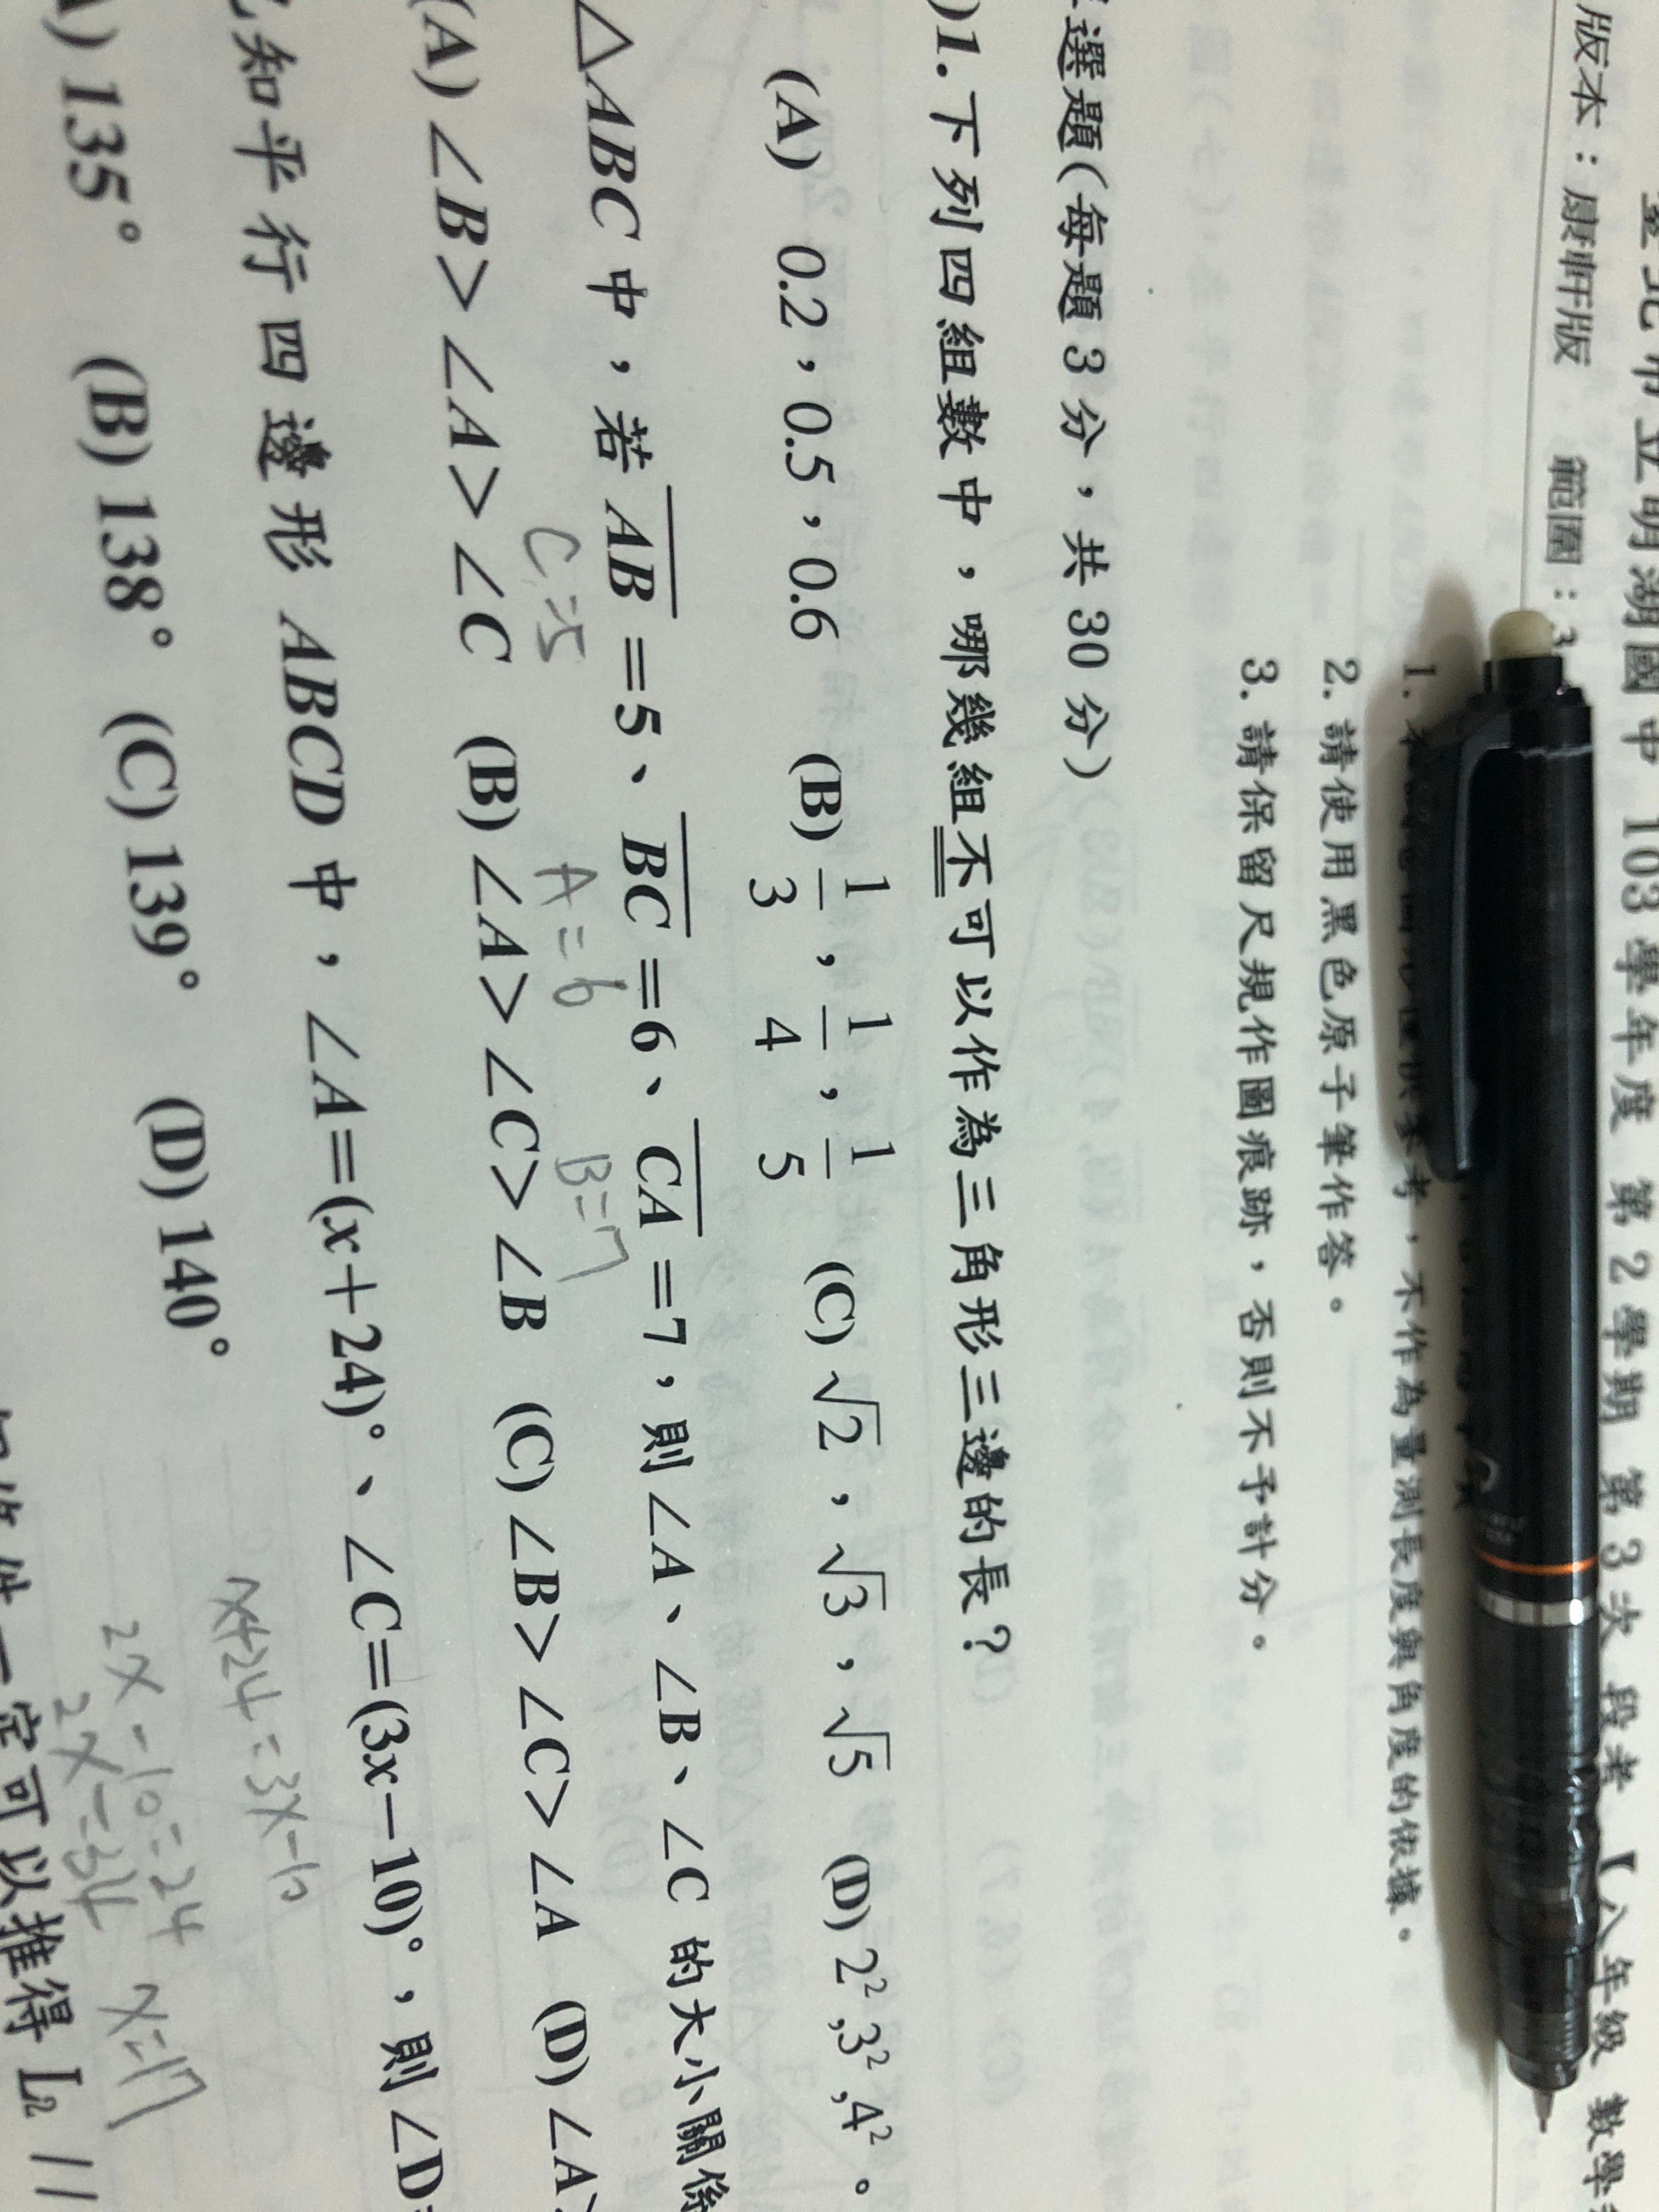 北市立明湖國中 103學年度 第2學期 第3次 段考 【八年級 數學
版本：康軒版 範圍：3
不作為量測長度與角度的依據。
2. 請使用黑色原子筆作答。
3. 請保留尺規作圖痕跡，否則不予計分。
選題(每題3分，共30分)
)1. 下列四組數中，哪幾組不可以作為三角形三邊的長？
(A) 0.2，0.5，0.6 (B) 1/3，1/4，1/5 (C) √2，√3，√5 (D) 2²,3²,4²。
△ABC中，若AB=5、BC=6、CA=7，則∠A、∠B、∠C的大小關係
C=5 A=6 B=7
(A) ∠B>∠A>∠C (B) ∠A>∠C>∠B (C) ∠B>∠C>∠A (D) ∠A>
知平行四邊形 ABCD 中，∠A=(x+24)°、∠C=(3x−10)°，則∠D=
x+24=3x-10
) 135° (B) 138° (C) 139° (D) 140°
2x-10=24
2x=34 x=17
一定可以推得 L₂ //